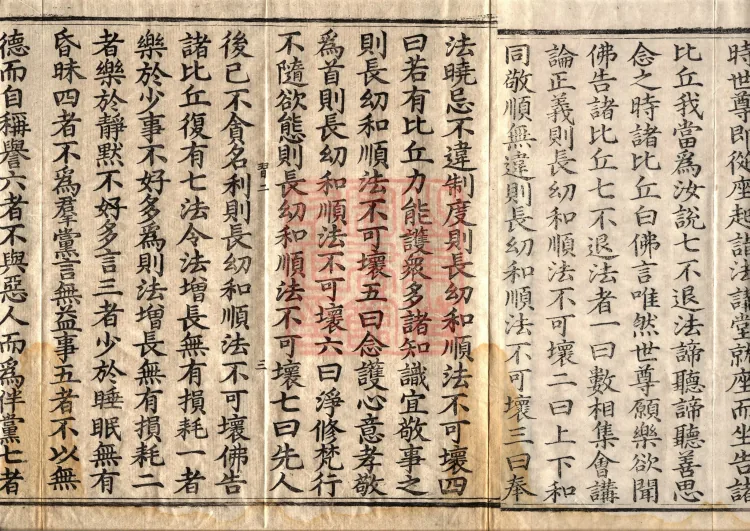 時世尊即從座起詣法講堂就座而坐告諸
比丘我當爲汝說七不退法諦聽諦聽善思
念之時諸比丘白佛言唯然世尊願樂欲聞
佛告諸比丘七不退法者一曰數相集會講
論正義則長幼和順法不可壞二曰上下和
同敬順無違則長幼和順法不可壞三曰奉
法曉忌不違制度則長幼和順法不可壞四
曰若有比丘力能護衆多諸知識宜敬事之
則長幼和順法不可壞五曰念護心意孝敬
爲首則長幼和順法不可壞六曰淨修梵行
不隨欲態則長幼和順法不可壞七曰先人
習二 三
後己不貪名利則長幼和順法不可壞佛告
諸比丘復有七法令法增長無有損耗一者
樂於少事不好多爲則法增長無有損耗二
者樂於靜默不好多言三者少於睡眠無有
昏昧四者不爲羣黨言無益事五者不以無
德而自稱譽六者不與惡人而爲伴黨七者